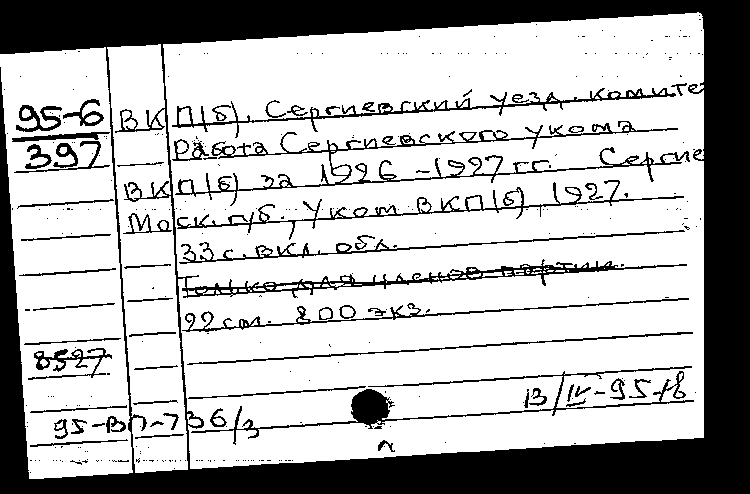 95-6
397
ВКП(б). Сергиевский уезд. комите
Работа Сергиевского укома
ВКП(б) за 1926-1927 гг. Сергие
Моск. губ., Уком ВКП(б), 1927.
33 с. вкл. обл.
Только для членов партии.
22 см. 800 экз.
8527
95-ВП-736/3
13/IV-95